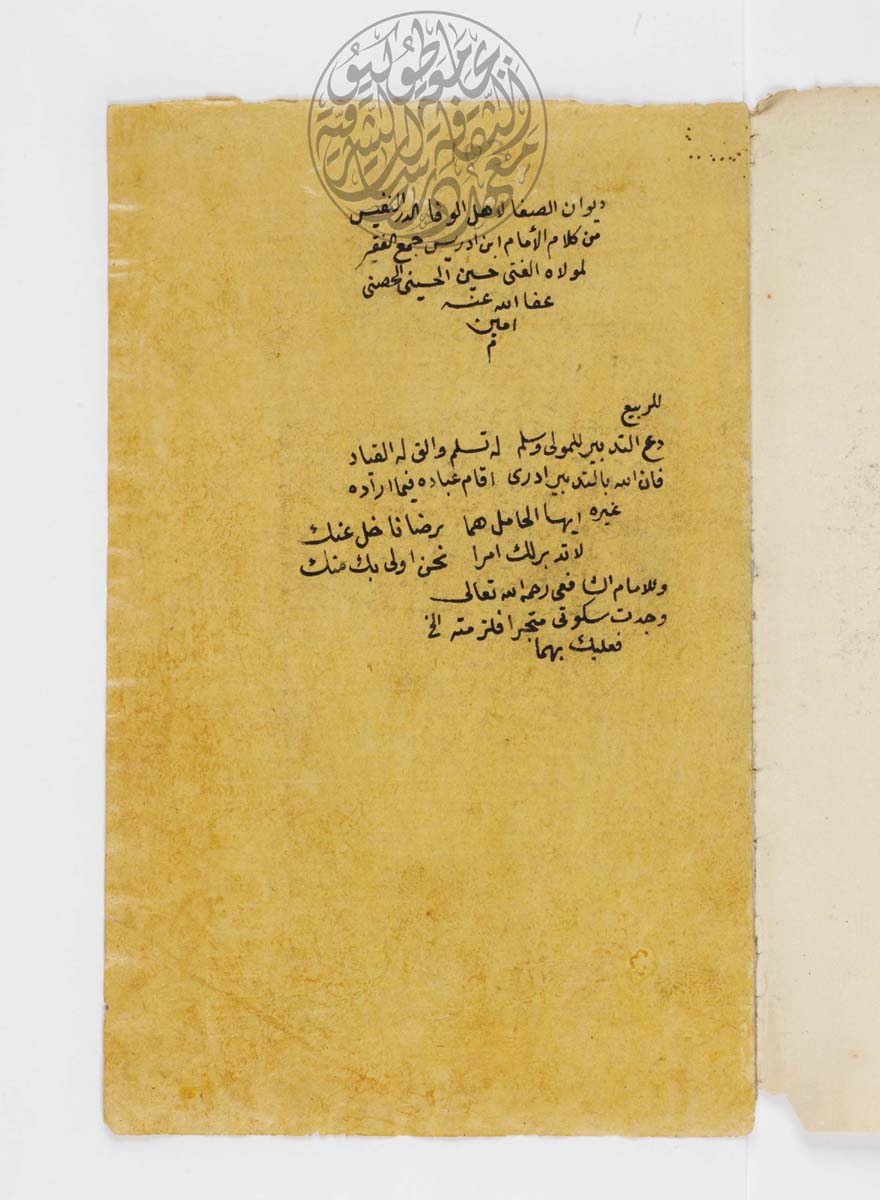 ديوان الصفا لاهل الوفا الدر النفيس
من كلام الأمام ابن ادريس جمع الفقير
لمولاه الغنى حسين الحسينى الحصنى
عفا الله عنه
امين
م
للربيع
دع التدبير للمولى وسلم له تسلم والق له القياد
فان الله بالتدبير ادرى اقام عباده فيما اراده
غيره ايها الحامل هما برضانا خل عنك
لا تدبر لك امرا نحن اولى بك منك
وللامام الشافعى رحمه الله تعالى
وجدت سكوتى متجرا فلزمته الخ
فعليك بهما